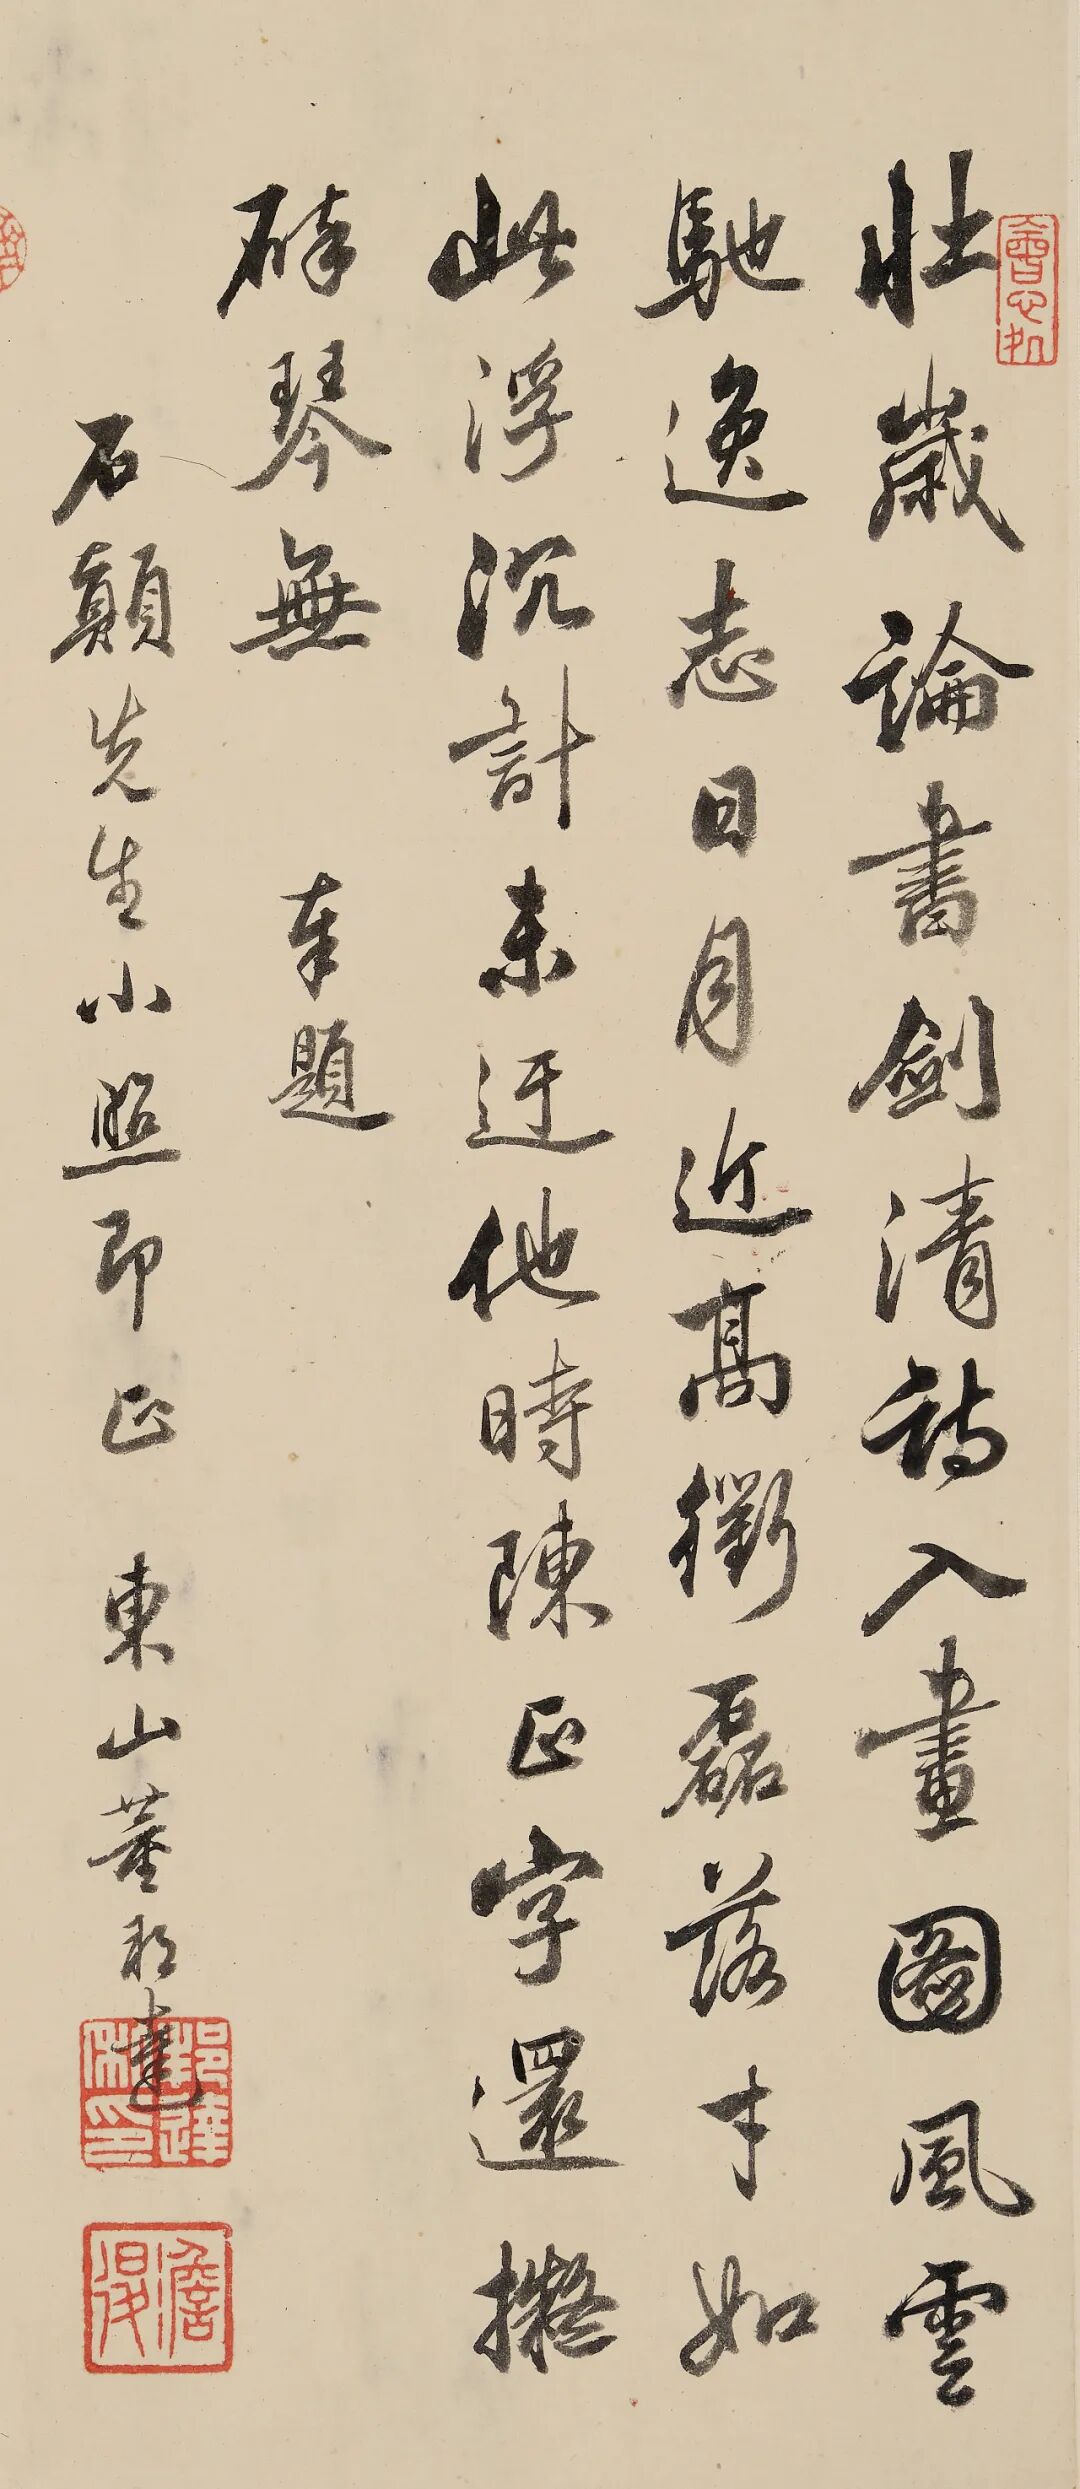 壯歲論書劍清詩入畫圖風雲
馳逸志日月近高衢磊落才如
此浮沉計未迂他時陳正字還擬
碎琴無
奉題
石顛先生小照即正 東山董邦達
邦達
澹